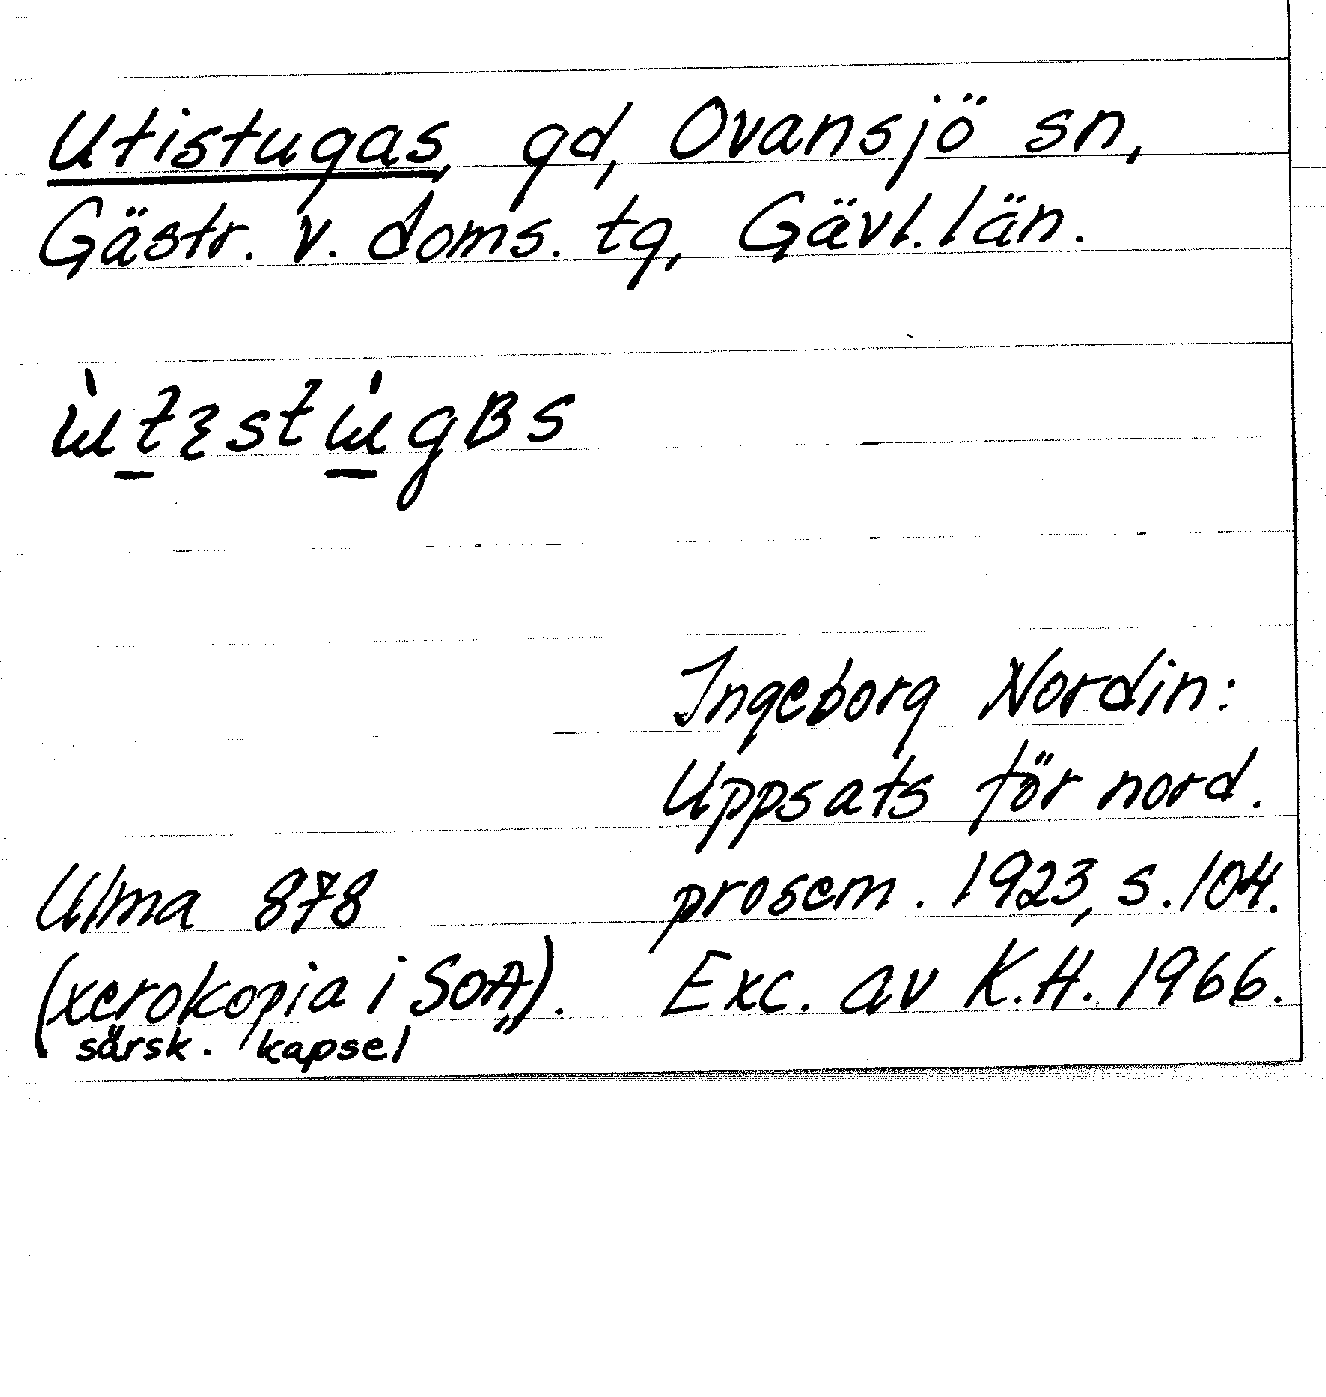 Utistugas, gd, Ovansjö sn,
Gästr. v. doms. tg, Gävl. län.
Ingeborg Nordin:
Uppsats för nord.
Ulma 878 prosem. 1923, s. 104.
(xerokopia i SOA). Exc. av K.H. 1966.
särsk. kapsel